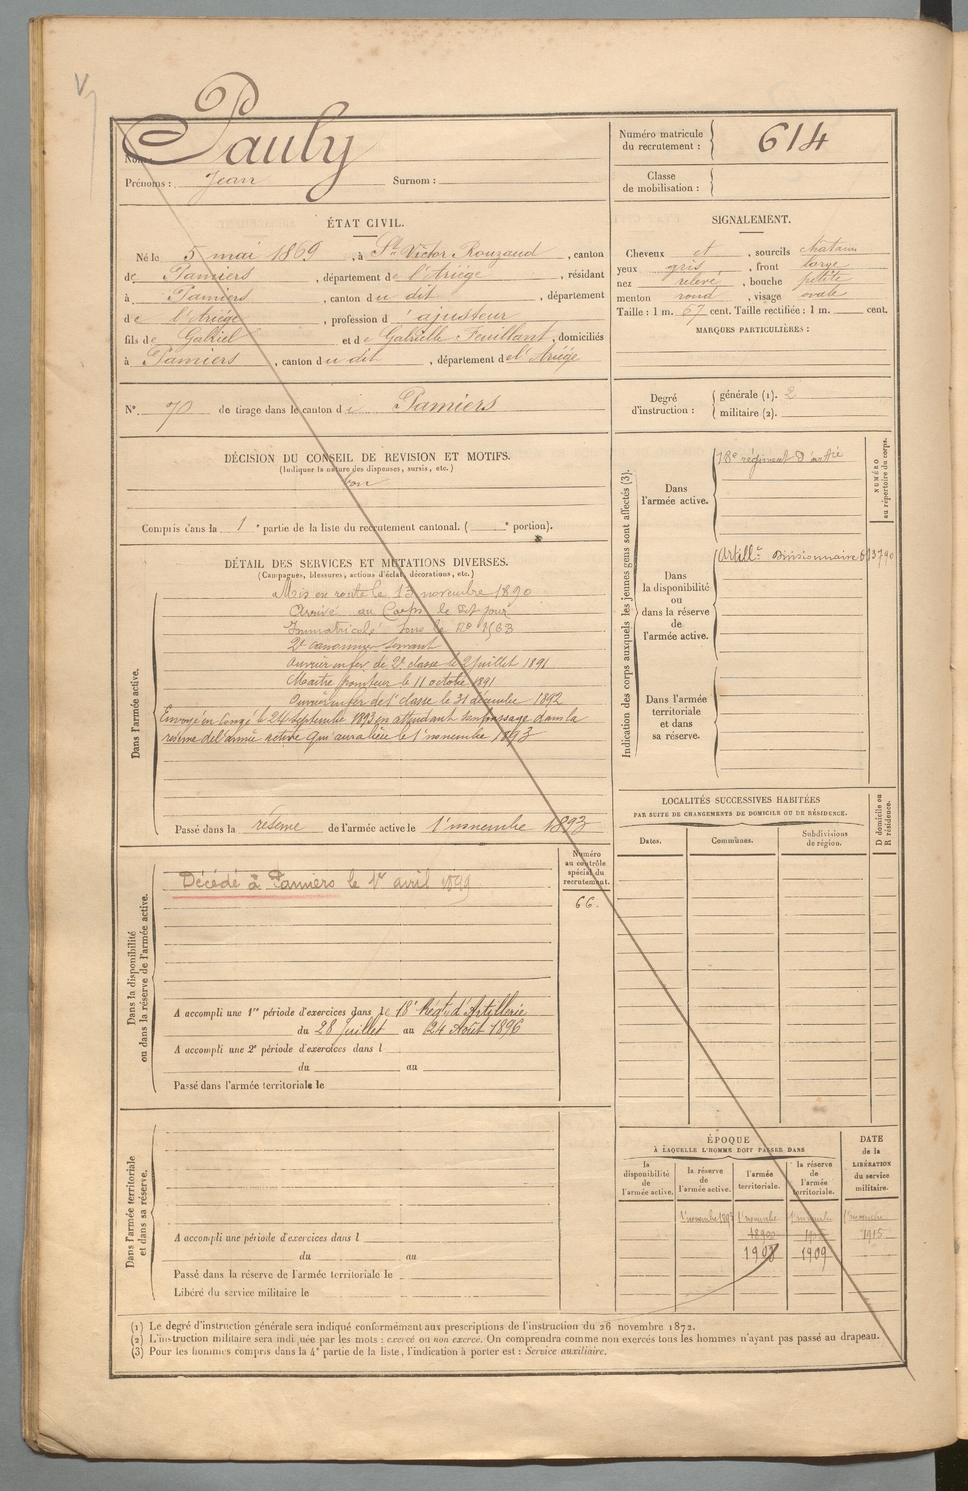 Pauly
Nom :
Prénoms : Jean Surnom :
Numéro matricule
du recrutement : 614
Classe
de mobilisation :
ÉTAT CIVIL.
Né le 5 mai 1869, à St Victor Rouzaud, canton
de Pamiers, département de l'Ariège, résidant
à Pamiers, canton du dit, département
de l'Ariège, profession d'ajusteur
fils de Gabriel et de Gabrielle Feuillant, domiciliés
à Pamiers, canton du dit, département de l'Ariège
N° 70 de tirage dans le canton de Pamiers
SIGNALEMENT.
Cheveux et, sourcils chatains
yeux gris, front large
nez relevé, bouche petite
menton rond, visage ovale
Taille : 1 m. 67 cent. Taille rectifiée : 1 m. cent.
MARQUES PARTICULIÈRES :
Degré
d'instruction :
générale (1). 2
militaire (2).
DÉCISION DU CONSEIL DE REVISION ET MOTIFS.
(Indiquer la nature des dispenses, sursis, etc.)
Bon
Compris dans la 1e partie de la liste du recrutement cantonal. ( e portion).
DÉTAIL DES SERVICES ET MUTATIONS DIVERSES.
(Campagnes, blessures, actions d'éclat, décorations, etc.)
Dans l'armée active.
Mis en route le 13 novembre 1890
Arrivé au Corps le dit jour
Immatriculé sous le N° 1563
2e canonnier servant
Ouvrier en fer de 2e classe le 2 juillet 1891
Maitre pointeur le 11 octobre 1891
Ouvrier en fer de 1e classe le 31 décembre 1892
Envoyé en congé le 24 Septembre 1893 en attendant son passage dans la
réserve de l'armée active qui aura lieu le 1er novembre 1893
Passé dans la réserve de l'armée active le 1er novembre 1893
Indication des corps auxquels les jeunes gens sont affectés (3).
NUMÉRO
au répertoire du corps.
Dans
l'armée active.
18e régiment d'artie
Dans
la disponibilité
ou
dans la réserve
de
l'armée active.
Artillie Divisionnaire 6 13790
Dans l'armée
territoriale
et dans
sa réserve.
LOCALITÉS SUCCESSIVES HABITÉES
PAR SUITE DE CHANGEMENTS DE DOMICILE OU DE RÉSIDENCE.
Dates. Communes. Subdivisions
de région.
D domicile ou
R résidence.
Dans la disponibilité
ou dans la réserve de l'armée active.
Numéro
au contrôle
spécial du
recrutement.
66.
Décédé à Pamiers le 1er avril 1899
A accompli une 1re période d'exercices dans le 18e Régt d'Artillerie
du 28 Juillet au 24 Août 1896
A accompli une 2e période d'exercices dans l
du au
Passé dans l'armée territoriale le
Dans l'armée territoriale
et dans sa réserve.
A accompli une période d'exercices dans l
du au
Passé dans la réserve de l'armée territoriale le
Libéré du service militaire le
ÉPOQUE
À LAQUELLE L'HOMME DOIT PASSER DANS
DATE
de la
LIBÉRATION
du service
militaire.
la
disponibilité
de
l'armée active.
la réserve
de
l'armée active.
l'armée
territoriale.
la réserve
de
l'armée
territoriale.
1er novembre 1893 1er novembre 1er novembre 1er novembre
1915
1903 1909
(1) Le degré d'instruction générale sera indiqué conformément aux prescriptions de l'instruction du 26 novembre 1872.
(2) L'instruction militaire sera indiquée par les mots : exercé ou non exercé. On comprendra comme non exercés tous les hommes n'ayant pas passé au drapeau.
(3) Pour les hommes compris dans la 4e partie de la liste, l'indication à porter est : Service auxiliaire.